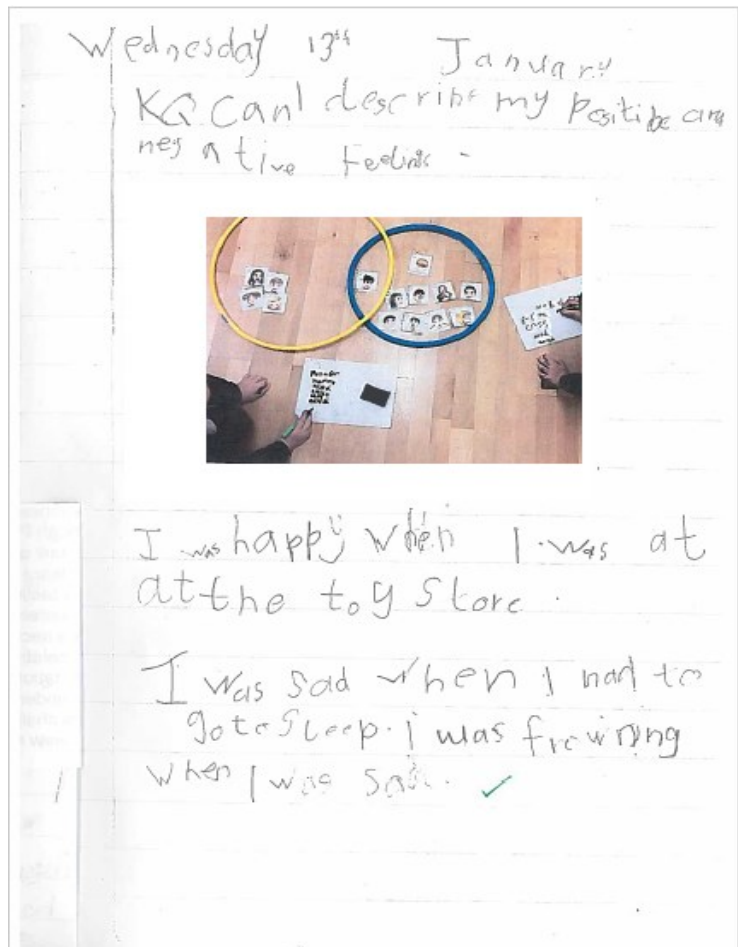 Wednesday 13th January
KQ Can I describe my positive and
negative feelings -
I was happy when I was at
at the toy Store.
I was sad when I had to
go to sleep. i was frowning
when I was sad.